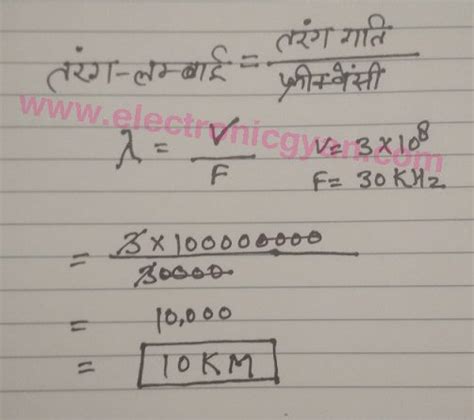 तरंग-लम्बाई = तरंग गति / फ्रीक्वेंसी
www.electronicgyan.com
λ = V / F V = 3 × 10⁸
F = 30 KHz
= 3 × 100000000 / 30000
= 10,000
= 10 KM